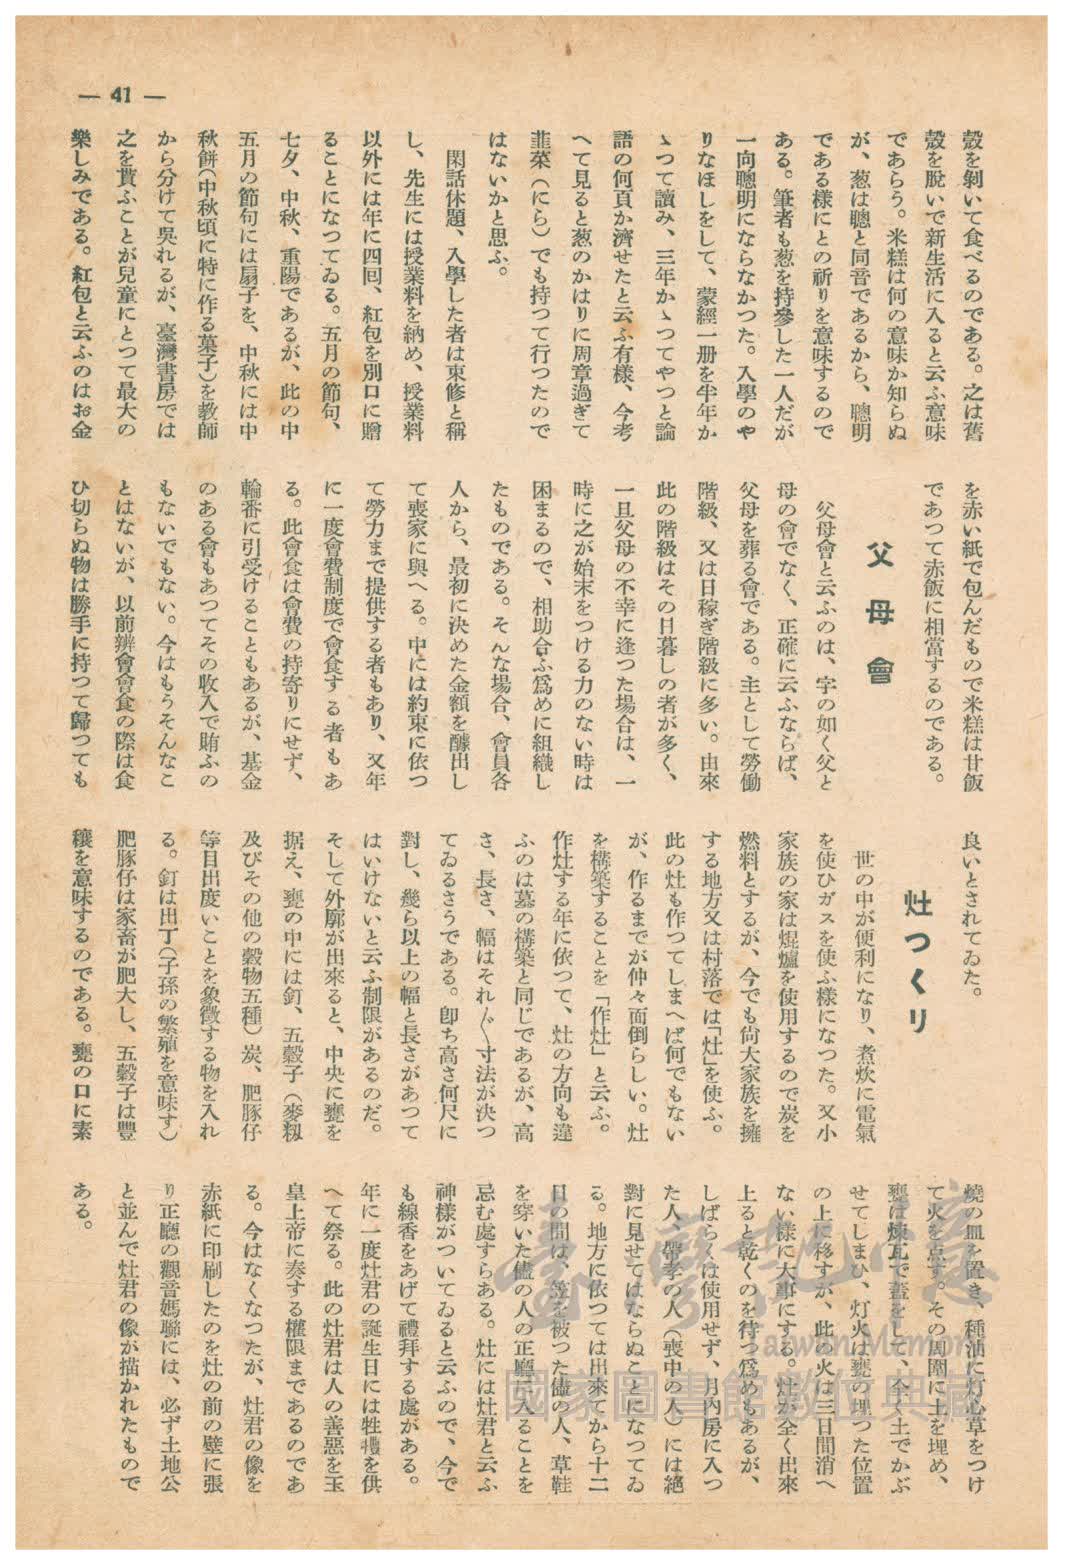 — 41 —
殼を剝いて食べるのである。之は舊
殼を脫いで新生活に入ると云ふ意味
であらう。米糕は何の意味か知らぬ
が、葱は聰と同音であるから、聰明
である樣にとの祈りを意味するので
ある。筆者も葱を持參した一人だが
一向聰明にならなかつた。入學のや
りなほしをして、蒙經一册を半年か
ゝつて讀み、三年かゝつてやつと論
語の何頁か濟せたと云ふ有樣、今考
へて見ると葱のかはりに周章過ぎて
韮菜（にら）でも持つて行つたので
はないかと思ふ。
閑話休題、入學した者は束修と稱
し、先生には授業料を納め、授業料
以外には年に四囘、紅包を別口に贈
ることになつてゐる。五月の節句、
七夕、中秋、重陽であるが、此の中
五月の節句には扇子を、中秋には中
秋餅（中秋頃に特に作る菓子）を教師
から分けて吳れるが、臺灣書房では
之を貰ふことが兒童にとつて最大の
樂しみである。紅包と云ふのはお金
を赤い紙で包んだもので米糕は甘飯
であつて赤飯に相當するのである。
父母會
父母會と云ふのは、字の如く父と
母の會でなく、正確に云ふならば、
父母を葬る會である。主として勞働
階級、又は日稼ぎ階級に多い。由來
此の階級はその日暮しの者が多く、
一旦父母の不幸に逢つた場合は、一
時に之が始末をつける力のない時は
困まるので、相助合ふ爲めに組織し
たものである。そんな場合、會員各
人から、最初に決めた金額を醵出し
て喪家に與へる。中には約束に依つ
て勞力まで提供する者もあり、又年
に一度會費制度で會食する者もあ
る。此會食は會費の持寄りにせず、
輪番に引受けることもあるが、基金
のある會もあつてその收入で賄ふの
もないでもない。今はもうそんなこ
とはないが、以前辨會會食の際は食
ひ切らぬ物は勝手に持つて歸つても
良いとされてゐた。
灶つくり
世の中が便利になり、煮炊に電氣
を使ひガスを使ふ樣になつた。又小
家族の家は焜爐を使用するので炭を
燃料とするが、今でも尙大家族を擁
する地方又は村落では「灶」を使ふ。
此の灶も作つてしまへば何でもない
が、作るまでが仲々面倒らしい。灶
を構築することを「作灶」と云ふ。
作灶する年に依つて、灶の方向も違
ふのは墓の構築と同じであるが、高
さ、長さ、幅はそれ〲寸法が決つ
てゐるさうである。卽ち高さ何尺に
對し、幾ら以上の幅と長さがあつて
はいけないと云ふ制限があるのだ。
そして外廓が出來ると、中央に甕を
据え、甕の中には釘、五穀子（麥籾
及びその他の穀物五種）炭、肥豚仔
等目出度いことを象徵する物を入れ
る。釘は出丁（子孫の繁殖を意味す）
肥豚仔は家畜が肥大し、五穀子は豐
穰を意味するのである。甕の口に素
燒の皿を置き、種油に灯心草をつけ
て火を点す。その周圍に土を埋め、
甕は煉瓦で蓋をして、全く土でかぶ
せてしまひ、灯火は甕の埋つた位置
の上に移すが、此の火は三日間消へ
ない樣に大事にする。灶が全く出來
上ると乾くのを待つ爲めもあるが、
しばらくは使用せず、月內房に入つ
た人、帶孝の人（喪中の人）には絕
對に見せてはならぬことになつてゐ
る。地方に依つては出來てから十二
日の間は、笠を被つた儘の人、草鞋
を穿いた儘の人の正廳に入ることを
忌む處すらある。灶には灶君と云ふ
神樣がついてゐると云ふので、今で
も線香をあげて禮拜する處がある。
年に一度灶君の誕生日には牲禮を供
へて祭る。此の灶君は人の善惡を玉
皇上帝に奏する權限まであるのであ
る。今はなくなつたが、灶君の像を
赤紙に印刷したのを灶の前の壁に張
り正廳の觀音媽聯には、必ず土地公
と並んで灶君の像が描かれたもので
ある。
臺灣記憶
Taiwan Memory
國家圖書館數位典藏